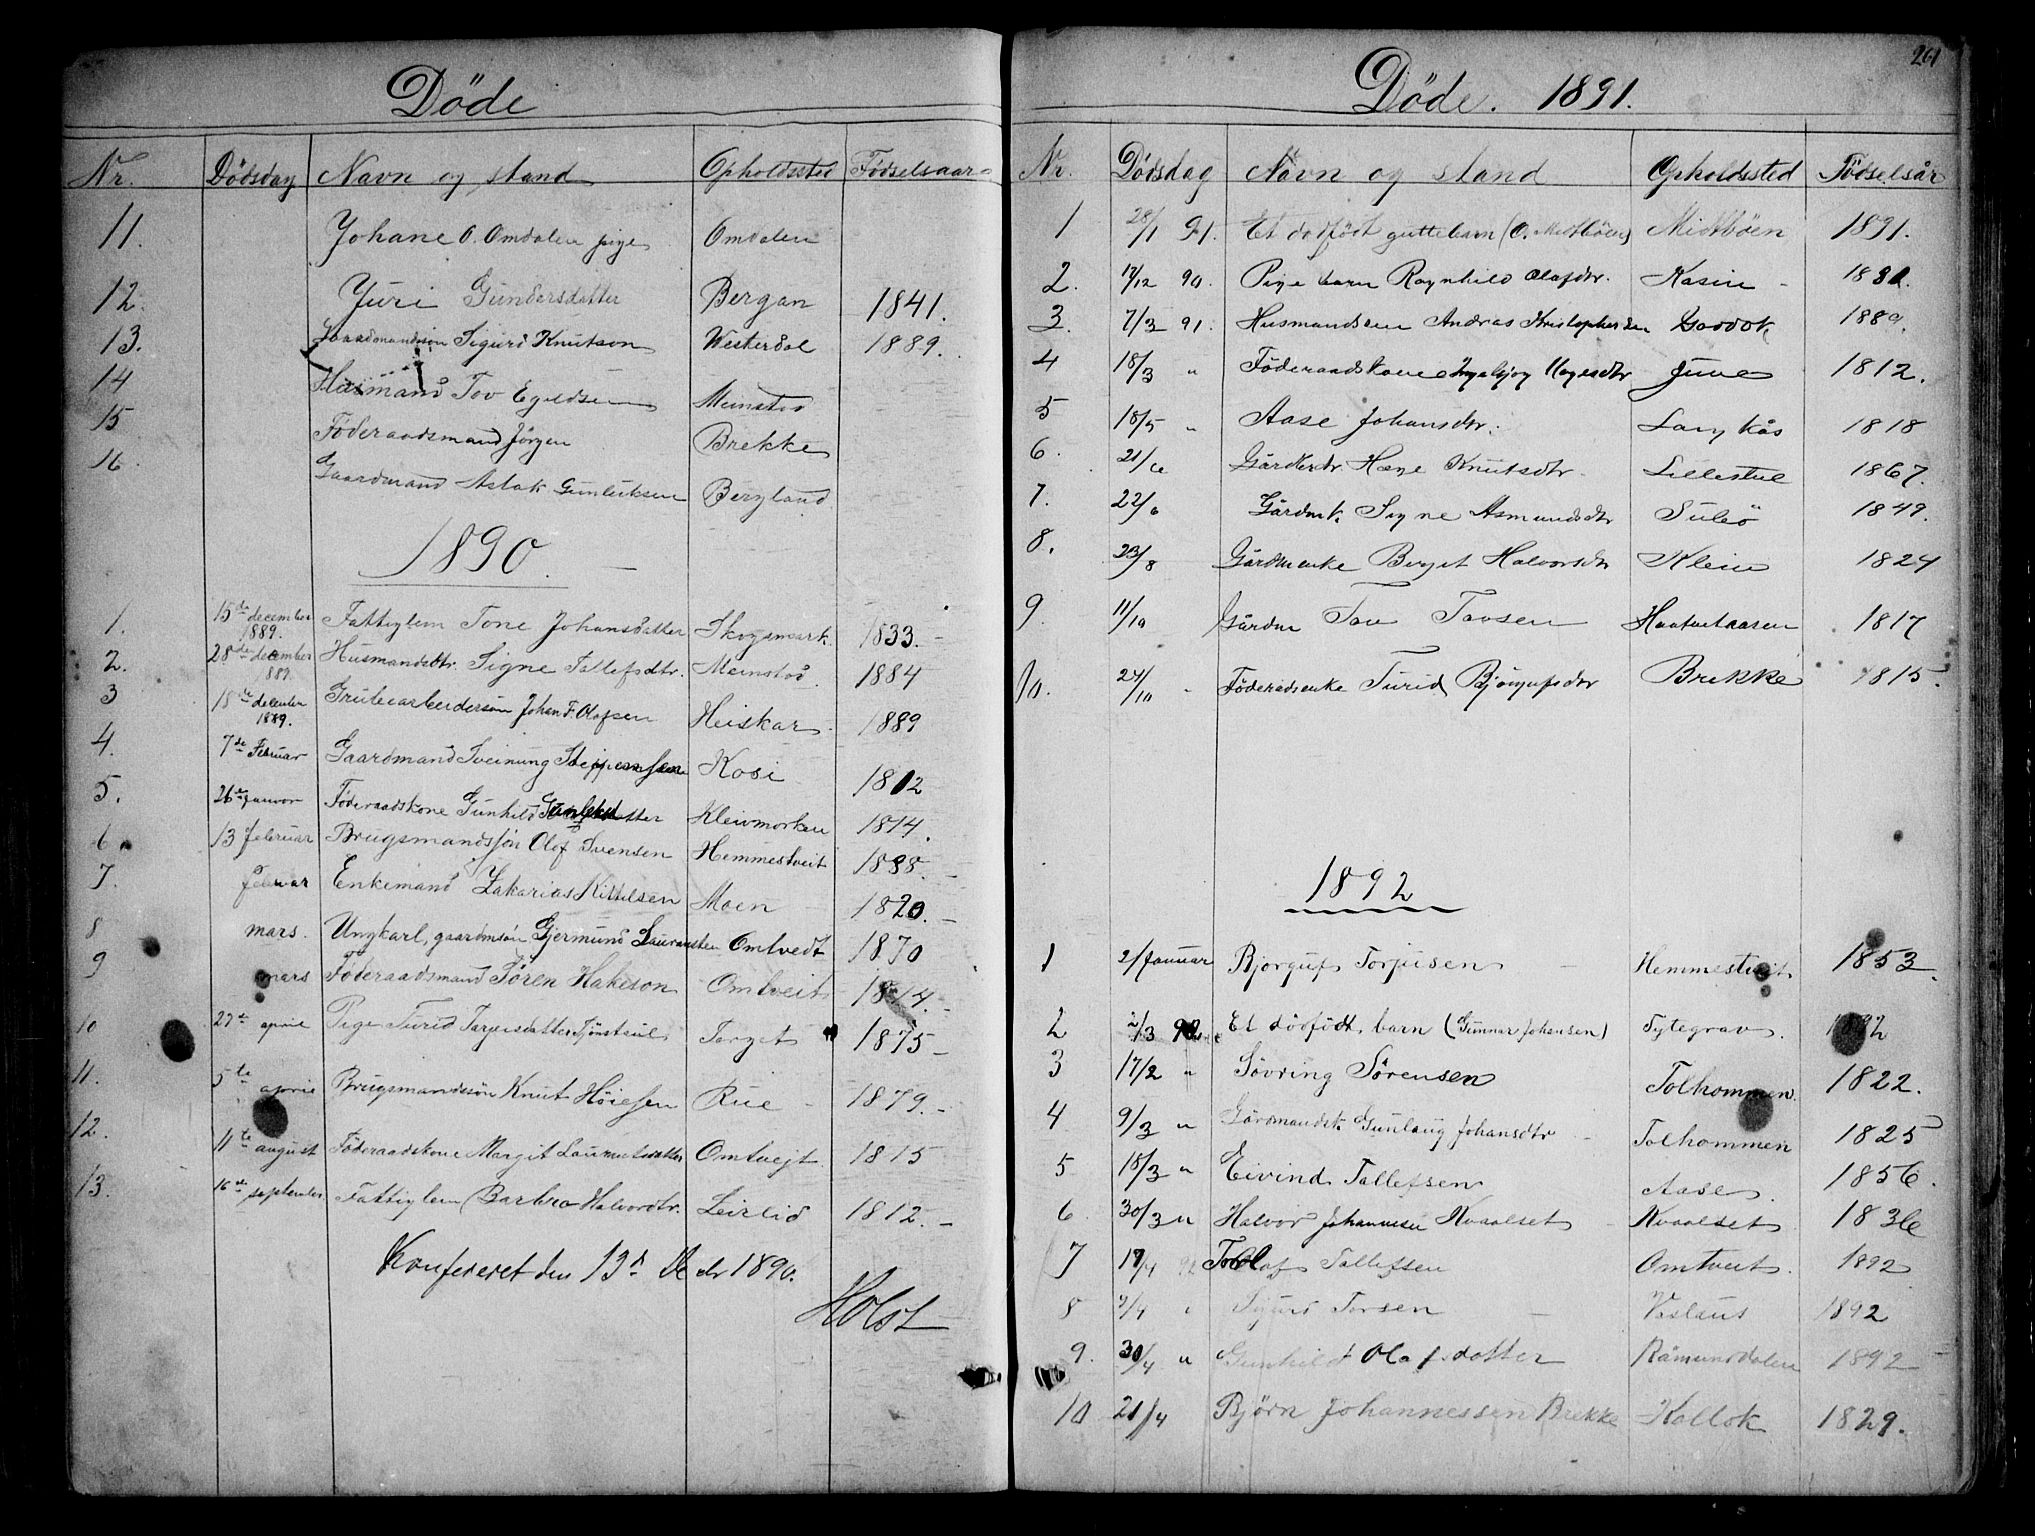 Döde
Nr. Dödsdag Navn og stand Opholdssted Födselsaar
11. Johane O. Omdalen pige Omdalen
12. Juri Gundersdatter Bergan 1841.
13. Gaardmandssön Sigurd Knutson Vesterdal 1889.
14 Husmand Tov Egildsen Meinstod
15 Föderaadsmand Jörgen Brekke
16. Gaardmand Aslak Gunleiksen Bergland
1890.
1. 15de december 1889. Fattiglem Tone Johansdatter Skogsmark 1833.
2. 28de december 1889. Husmandsdtr. Signe Tallefsdtr. Meinstod 1884
3 18de december 1889. Grubearbeidersön Johan F. Olafsen Heiskar 1889
4. 7de Februar Gaardmand Sveinung Steppensen Kosi 1812
5. 26de januar Föderaadskone Gunhild Kleivmorken 1814.
6 13 februar Brugsmandssön Olof Svensen Hemmestveit 1888.
7. februar Enkemand Zakarias Kittilsen Moen 1820.
8 mars. Ungkarl, gaardmsön Gjermund Lauransten Omtvedt 1870
9 mars Föderaadsmand Sören Hakeson Omtveit 1814.
10 27de april Pige Turid Torjusdatter Tjöntsul Torget 1875
11. 5te april Brugsmandssön Knut Höiesen Rue 1879.
12. 11te august Föderaadskone Margit Laurantsdatter Omtvejt 1815
13. 16de september Fattiglem Barbro Halvordtr. Leirlid 1812.
Konfereret den 13de Decbr 1890.
Holst
261
Döde. 1891.
Nr. Dödsdag Navn og stand Opholdssted Födselsår
1 28/1 91. Et dödfödt guttebarn (O. Midtböen) Midtböen 1891.
2. 17/12 90. Pige barn Ragnhild Olafdtr. Kasin
3. 7/3 91. Husmandssön Andras Kristophersen 1889.
4 18/3 " Föderaadskone Ingebjog Juve 1812.
5 18/5 " Aase Johansdtr. Langkås 1818
6. 21/6 Gårdkerdr. Hæge Knutsdtr. Lillestul 1867.
7. 22/6 Gårdmk. Signe Asmundsdtr Suleö 1849.
8. 23/8 Gårdmenke Berget Halvorsdtr Kleiv 1824
9. 11/10 Gårdm Tov Tovsen Haatveitaasen 1817
10. 24/10 " Föderådsenke Turid Björgufsdtr Brekke 1815.
1892
1 2/Januar Bjorguf Torjusen Hemmestveit. 1853.
2 2/3 92 Et dödfödt barn (Gunnar Johansen) Tytegrav. 1892
3 17/2 " Sövring Sörensen Tolhommen. 1822.
4 9/3 " Gårdmandsk. Gunlaug Johansdtr Tolhommen 1825
5 18/3 " Eivind Tallefsen Aase. 1856.
6 30/3 " Halvor Johannesen Kvaalset Kvaalset 1836
7 17/4 92 Olaf Tallefsen Omtveit. 1892
8 2/4 " Sjurd Torsen Veslaus 1892
9. 30/4 " Gunhild Olafsdotter Råmundalen 1892
10 21/4 Björn Johannessen Brekke Kollok 1829.